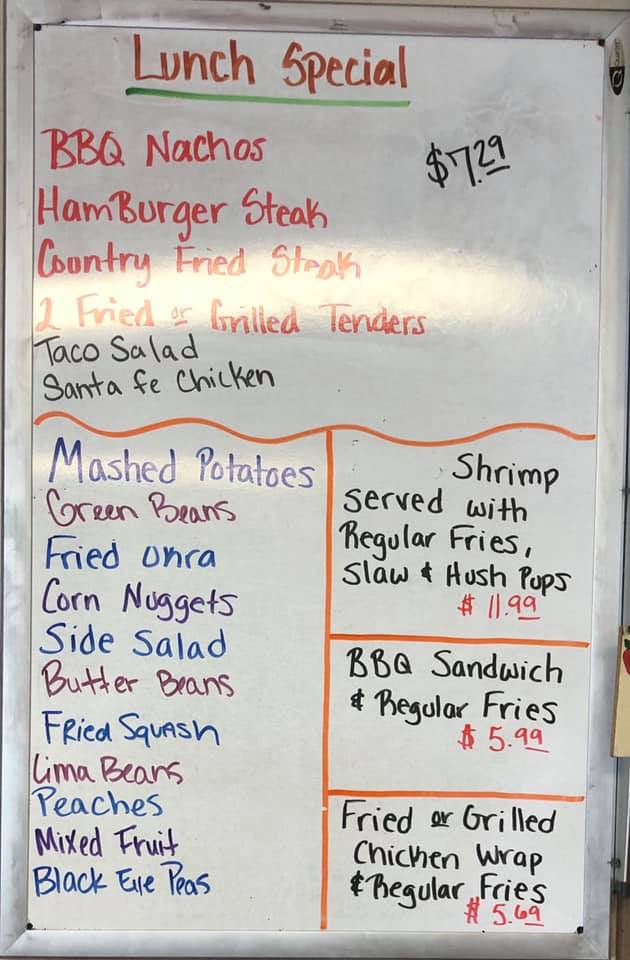 Lunch Special
BBQ Nachos
$7.29
HamBurger Steak
Country Fried Steak
2 Fried or Grilled Tenders
Taco Salad
Santa fe Chicken
Mashed Potatoes
Green Beans
Fried Okra
Corn Nuggets
Side Salad
Butter Beans
Fried Squash
Lima Beans
Peaches
Mixed Fruit
Black Eye Peas
Shrimp
Served with
Regular Fries,
Slaw & Hush Pups
$11.99
BBQ Sandwich
& Regular Fries
$5.99
Fried or Grilled
Chicken Wrap
& Regular Fries
$5.69